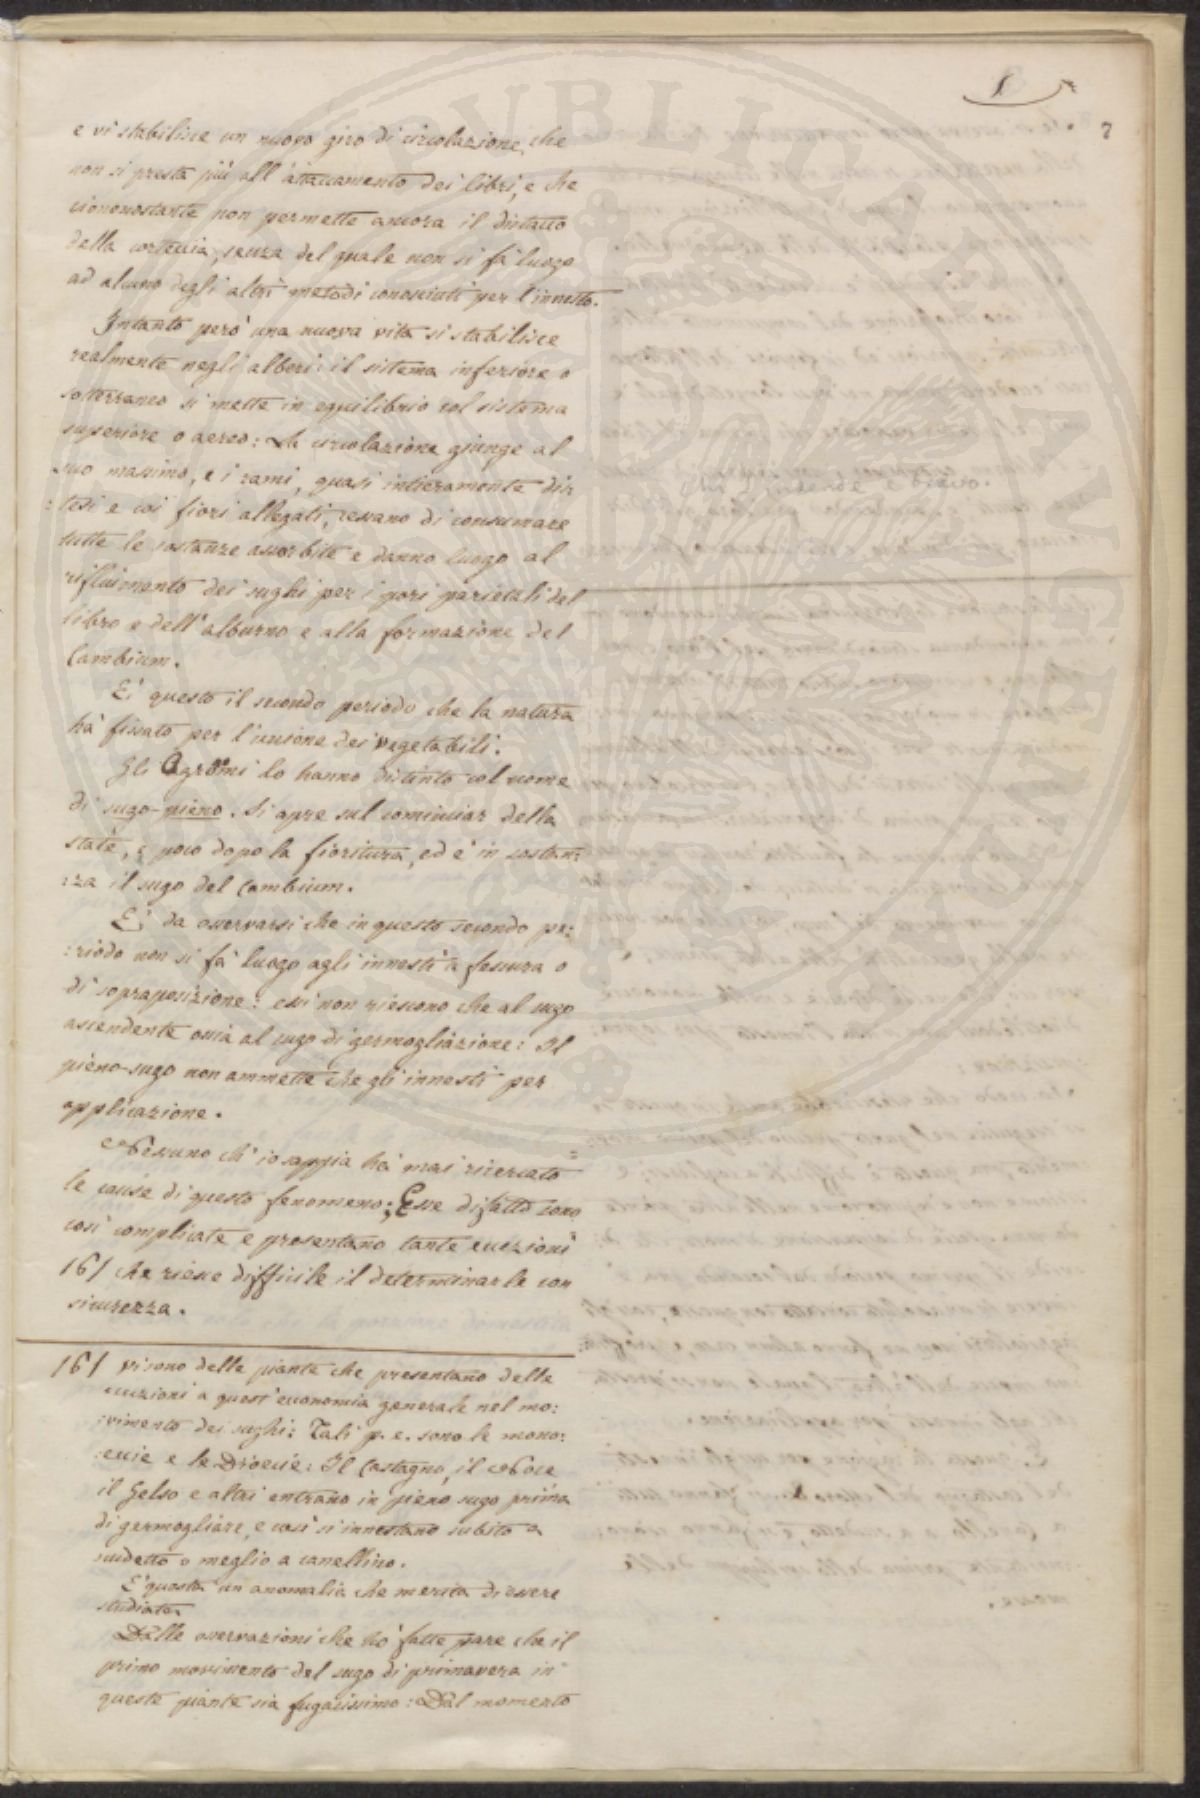 1
7
e vi stabilisce un nuovo giro di circolazione, che
non si presta più all'attaccamento dei libri, e che
ciononostante non permette ancora il distacco
della corteccia, senza del quale non si fà luogo
ad alcuno degli altri metodi conosciuti per l'innesto.
Intanto però una nuova vita si stabilisce
realmente negli alberi: il sistema inferiore o
sotterraneo si mette in equilibrio col sistema
superiore o aereo: La circolazione giunge al
suo massimo, e i rami, quasi intieramente dis
:tesi e coi fiori allegati, cessano di consumare
tutte le sostanze assorbite e danno luogo al
rifluimento dei sughi per i pori parietali del
libro e dell'alburno e alla formazione del
Cambium.
E' questo il secondo periodo che la natura
hà fissato per l'unione dei vegetabili.
Gli Agromi lo hanno distinto col nome
di sugo-pieno. Si apre sul cominciar della
state, e poco dopo la fioritura, ed è in sostan:
:za il sugo del Cambium.
E' da osservarsi che in questo secondo pe:
:riodo non si fà luogo agli innesti a fessura o
di soprapposizione: essi non riescono che al sugo
ascendente ossia al sugo di germogliazione: Il
pieno-sugo non ammette che gli innesti per
applicazione.
Nessuno ch'io sappia hà mai ricercato
le cause di questo fenomeno; Esse difatto sono
così complicate e presentano tante eccezioni
161 che riesce difficile il determinarle con
sicurezza.
161 vi sono delle piante che presentano delle
eccezioni a quest'economia generale nel mo:
:vimento dei sughi: Tali p. e. sono le mono:
:ecie e le Dioecie: Il Castagno, il Noce
il Gelso e altri entrano in pieno sugo prima
di germogliare, e così si innestano subito a
scudetto o meglio a canellino.
E' questa un anomalia che merita di essere
studiata.
Dalle osservazioni che hò fatte pare che il
primo movimento del sugo di primavera in
queste piante sia fugacissimo: Dal momento